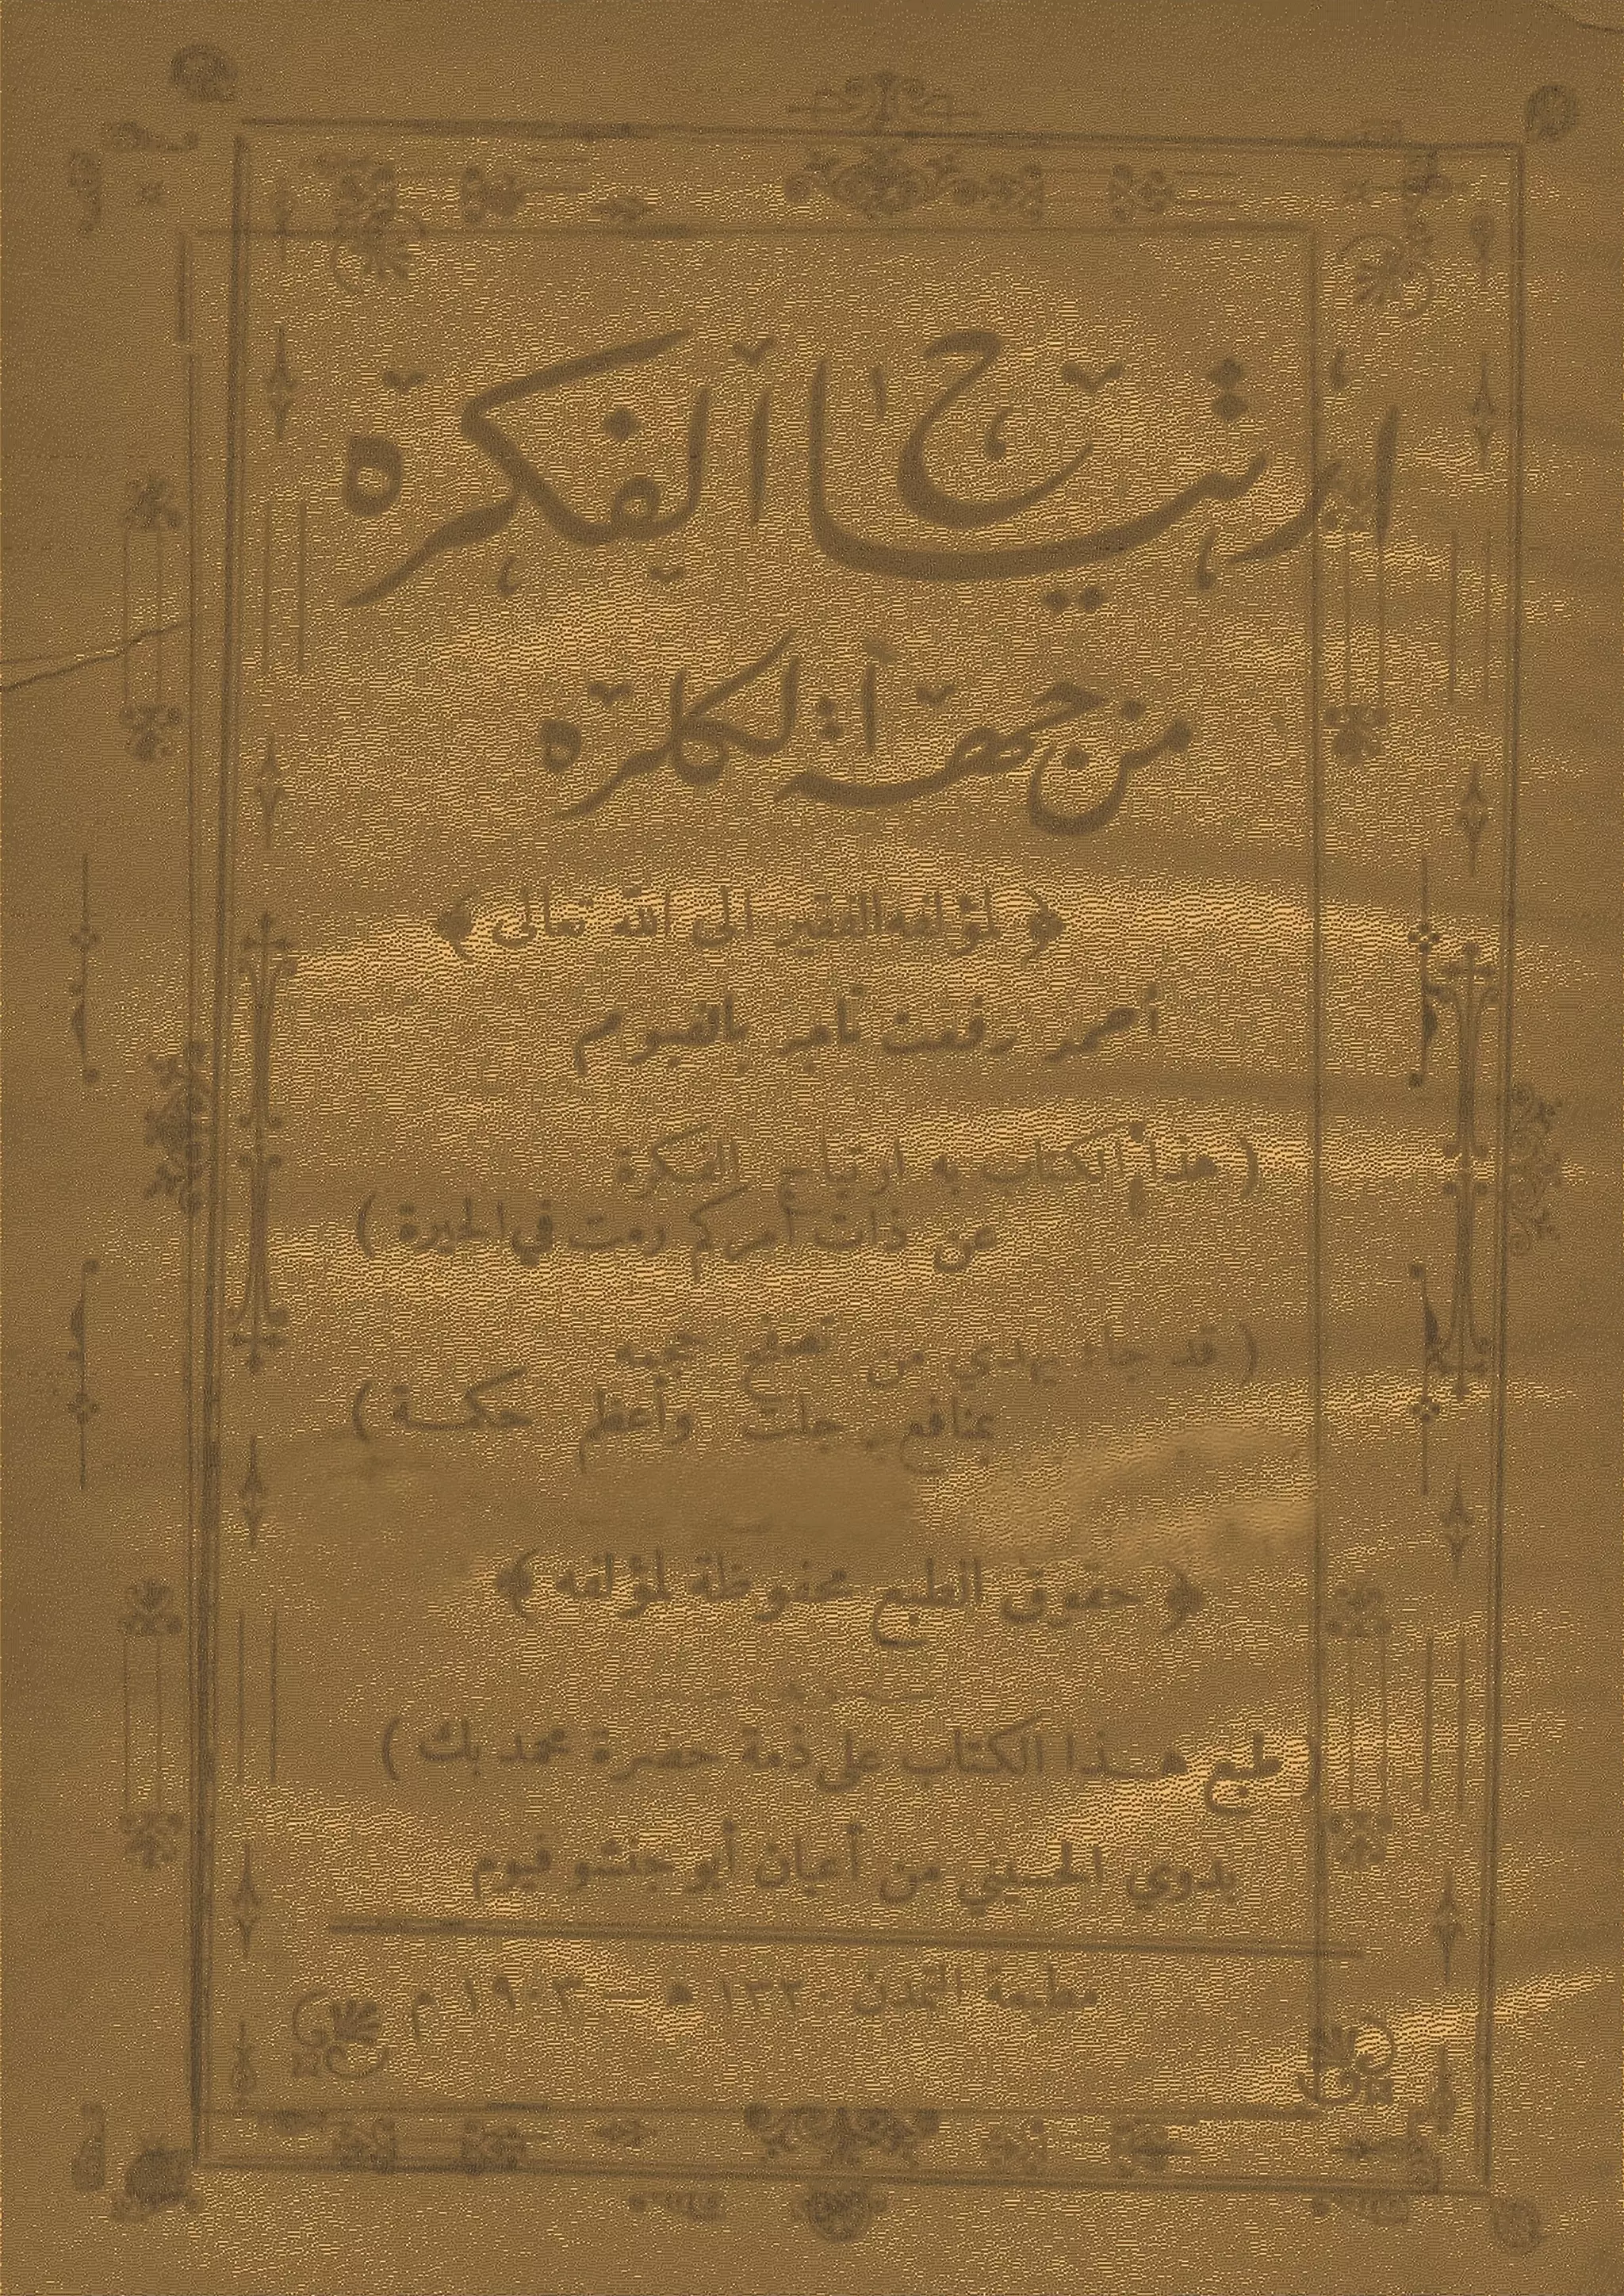 ارتياح الفكره
من جهة الكلره
﴿ لمؤلفه الفقير الى الله تعالى ﴾
أحمد رفعت تاجر بالفيوم
( هذا الكتاب به ارتياح الفكرة
عن ذات أمركم رمت في الحيرة )
( قد جاء يهدي من تصفح حجمه
بمنافع جلت وأعظم حكمة )
﴿ حقوق الطبع محفوظة لمؤلفه ﴾
( طبع هذا الكتاب على ذمة حضرة محمد بك )
بدوي الحسيني من أعيان أبو جنشو فيوم
مطبعة التمدن ١٣٢٠ ه — ١٩٠٣ م